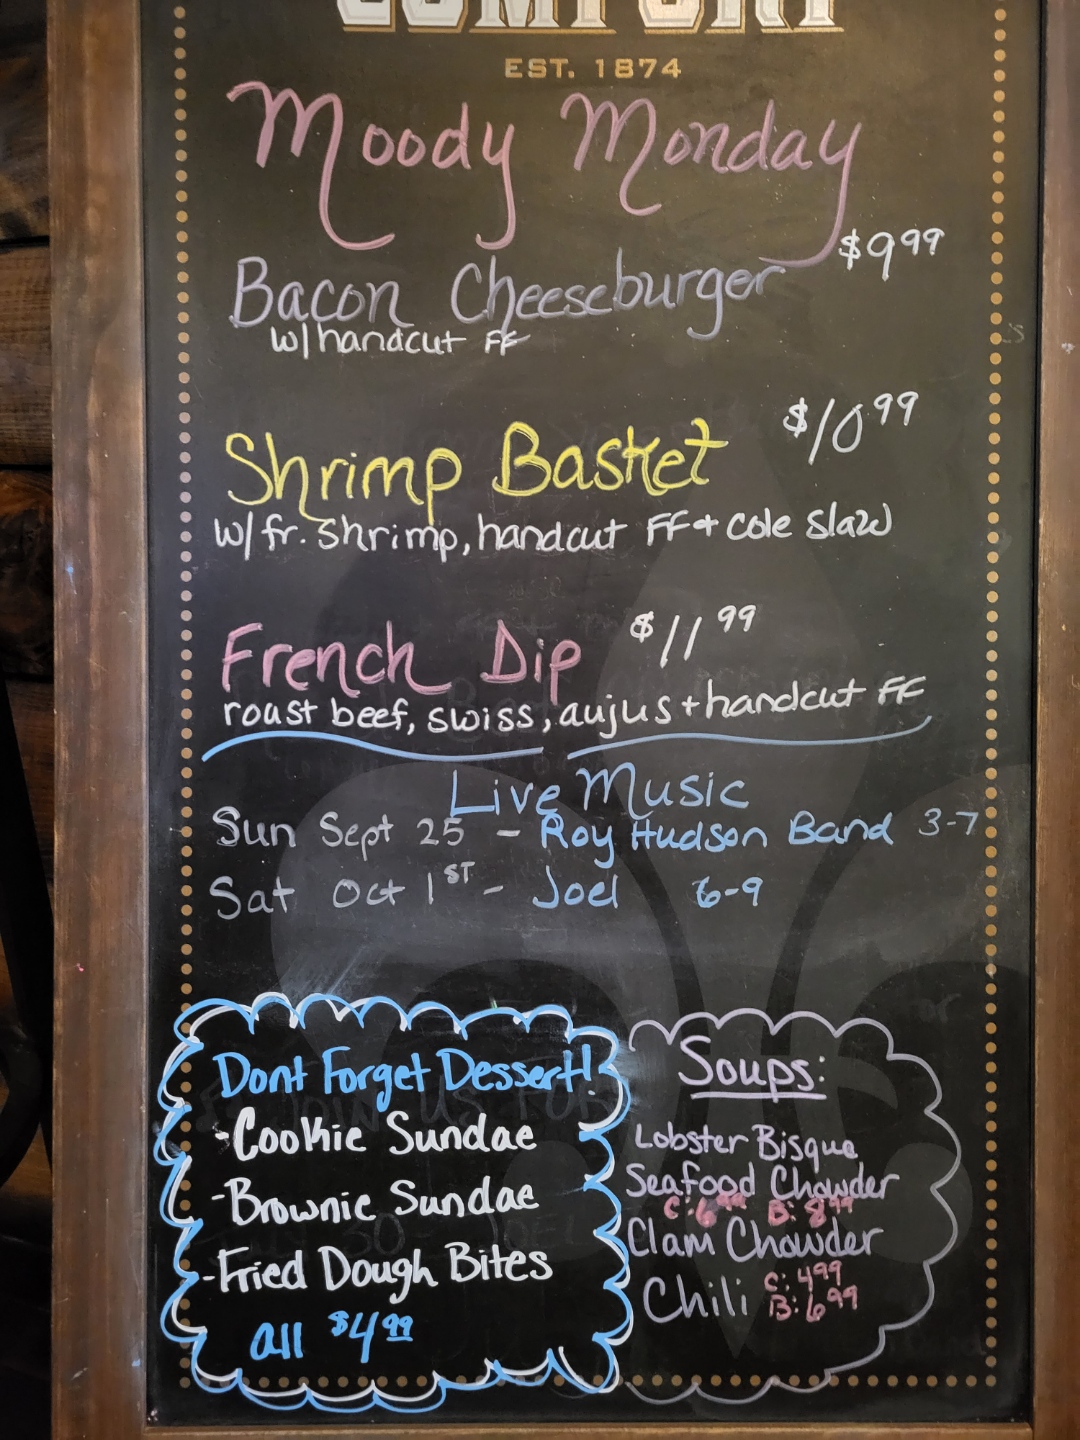 COMFORT
EST. 1874
Moody Monday
$9.99
Bacon Cheeseburger
w/handcut FF
$10.99
Shrimp Basket
w/fr. Shrimp, handcut FF + cole slaw
French Dip $11.99
roast beef, swiss, aujus + handcut FF
Live Music
Sun Sept 25 - Roy Hudson Band 3-7
Sat Oct 1ST - Joel 6-9
Dont Forget Dessert!
-Cookie Sundae
-Brownie Sundae
-Fried Dough Bites
all $4.99
Soups:
Lobster Bisque
Seafood Chowder
C: 6.99 B: 8.99
Clam Chowder
Chili C: 4.99
B: 6.99